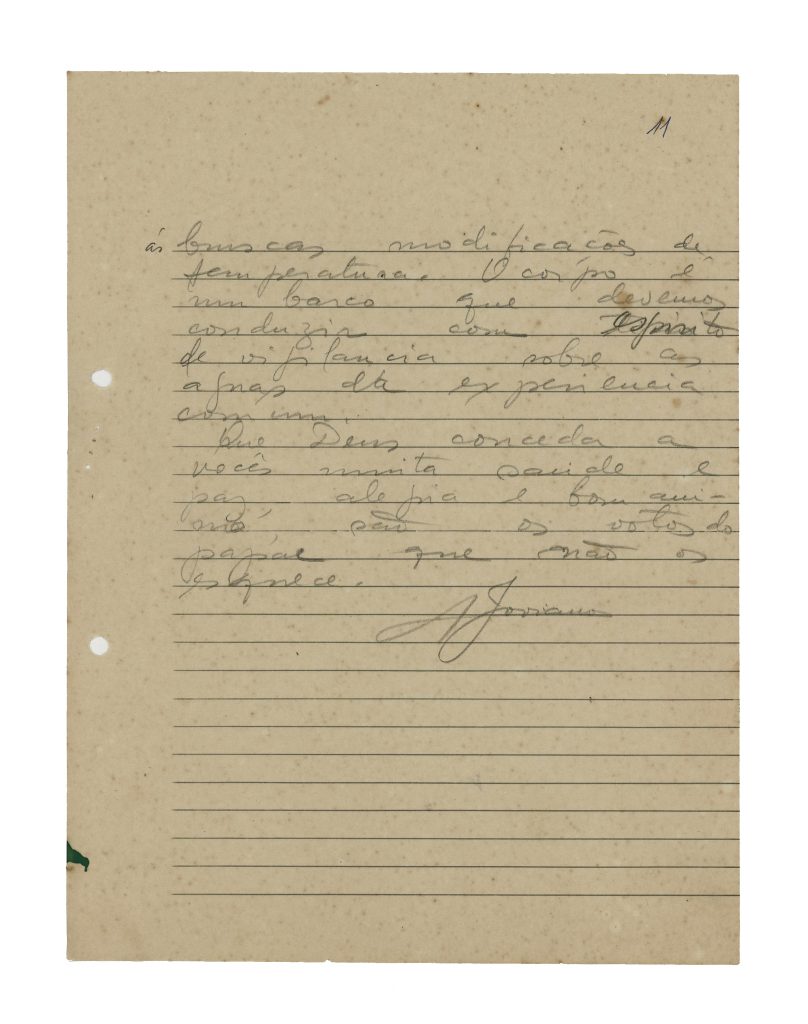 11
ás bruscas modificações de
temperatura. O corpo é
um barco que devemos
conduzir com espirito
de vigilancia sobre as
aguas da experiencia
comum.
Que Deus conceda a
vocês muita saude e
paz, alegria e bom ani-
mo, são os votos do
papae que não os
esquece.
A Joviano